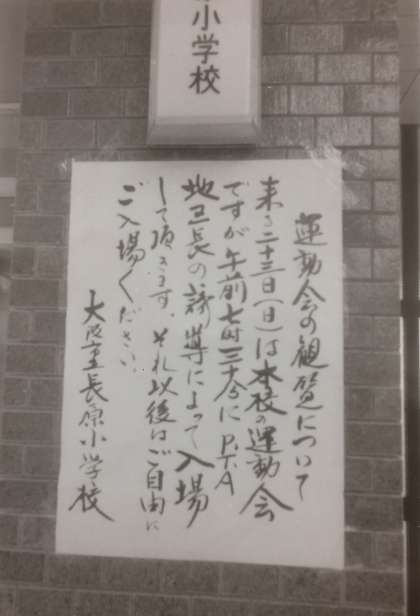 小学校
運動会の観覧について
来る二十三日(日)は本校の運動会
ですが午前七時三十分にP.T.A
地区長の誘導によって入場
して頂きます。それ以後はご自由に
ご入場ください。
大阪市立長原小学校